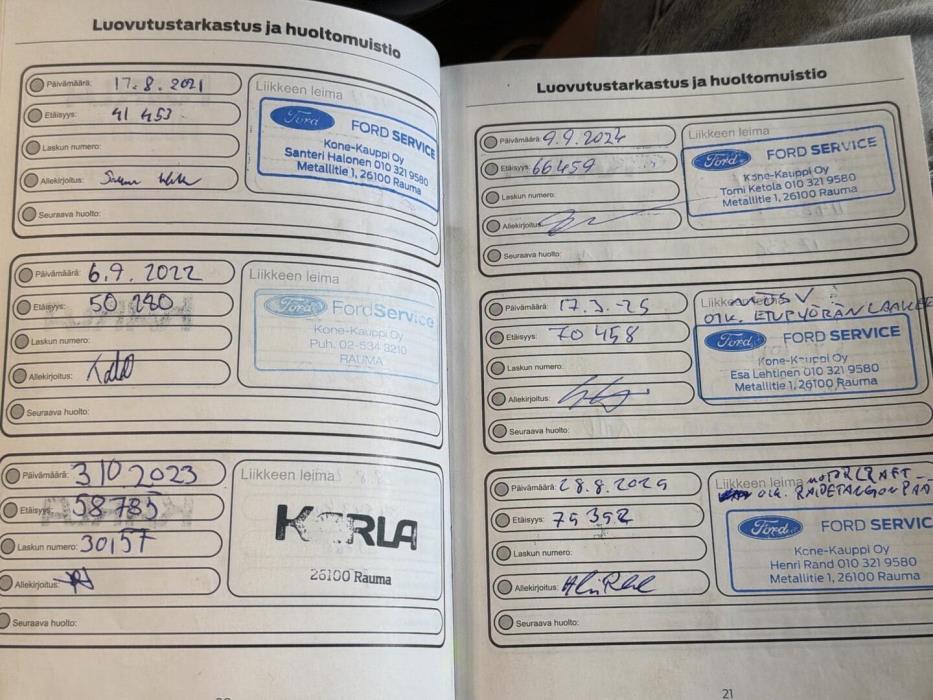 Luovutustarkastus ja huoltomuistio
Päivämäärä: 17.8.2021
Etäisyys: 41 453
Laskun numero:
Allekirjoitus:
Seuraava huolto:
Liikkeen leima
Ford FORD SERVICE
Kone-Kauppi Oy
Santeri Halonen 010 321 9580
Metallitie 1, 26100 Rauma
Päivämäärä: 6.9.2022
Etäisyys: 50 240
Laskun numero:
Allekirjoitus:
Seuraava huolto:
Liikkeen leima
Ford FordService
Kone-Kauppi Oy
Puh. 02-534 3210
RAUMA
Päivämäärä: 3.10.2023
Etäisyys: 58785
Laskun numero: 30157
Allekirjoitus:
Seuraava huolto:
Liikkeen leima
KORLA
26100 Rauma
Luovutustarkastus ja huoltomuistio
Päivämäärä: 9.9.2024
Etäisyys: 66459
Laskun numero:
Allekirjoitus:
Seuraava huolto:
Liikkeen leima
Ford FORD SERVICE
Kone-Kauppi Oy
Tomi Ketola 010 321 9580
Metallitie 1, 26100 Rauma
Päivämäärä: 17.3.-25
Etäisyys: 70 458
Laskun numero:
Allekirjoitus:
Seuraava huolto:
Liikkeen
OIK. ETUPYÖRÄNLAAKE
Ford FORD SERVICE
Kone-Kauppi Oy
Esa Lehtinen 010 321 9580
Metallitie 1, 26100 Rauma
Päivämäärä: 28.8.2025
Etäisyys: 75392
Laskun numero:
Allekirjoitus:
Seuraava huolto:
Liikkeen leima MOTORCRAFT
OIK. RAIDETANGONPÄÄ
Ford FORD SERVIC
Kone-Kauppi Oy
Henri Rand 010 321 9580
Metallitie 1, 26100 Rauma
21